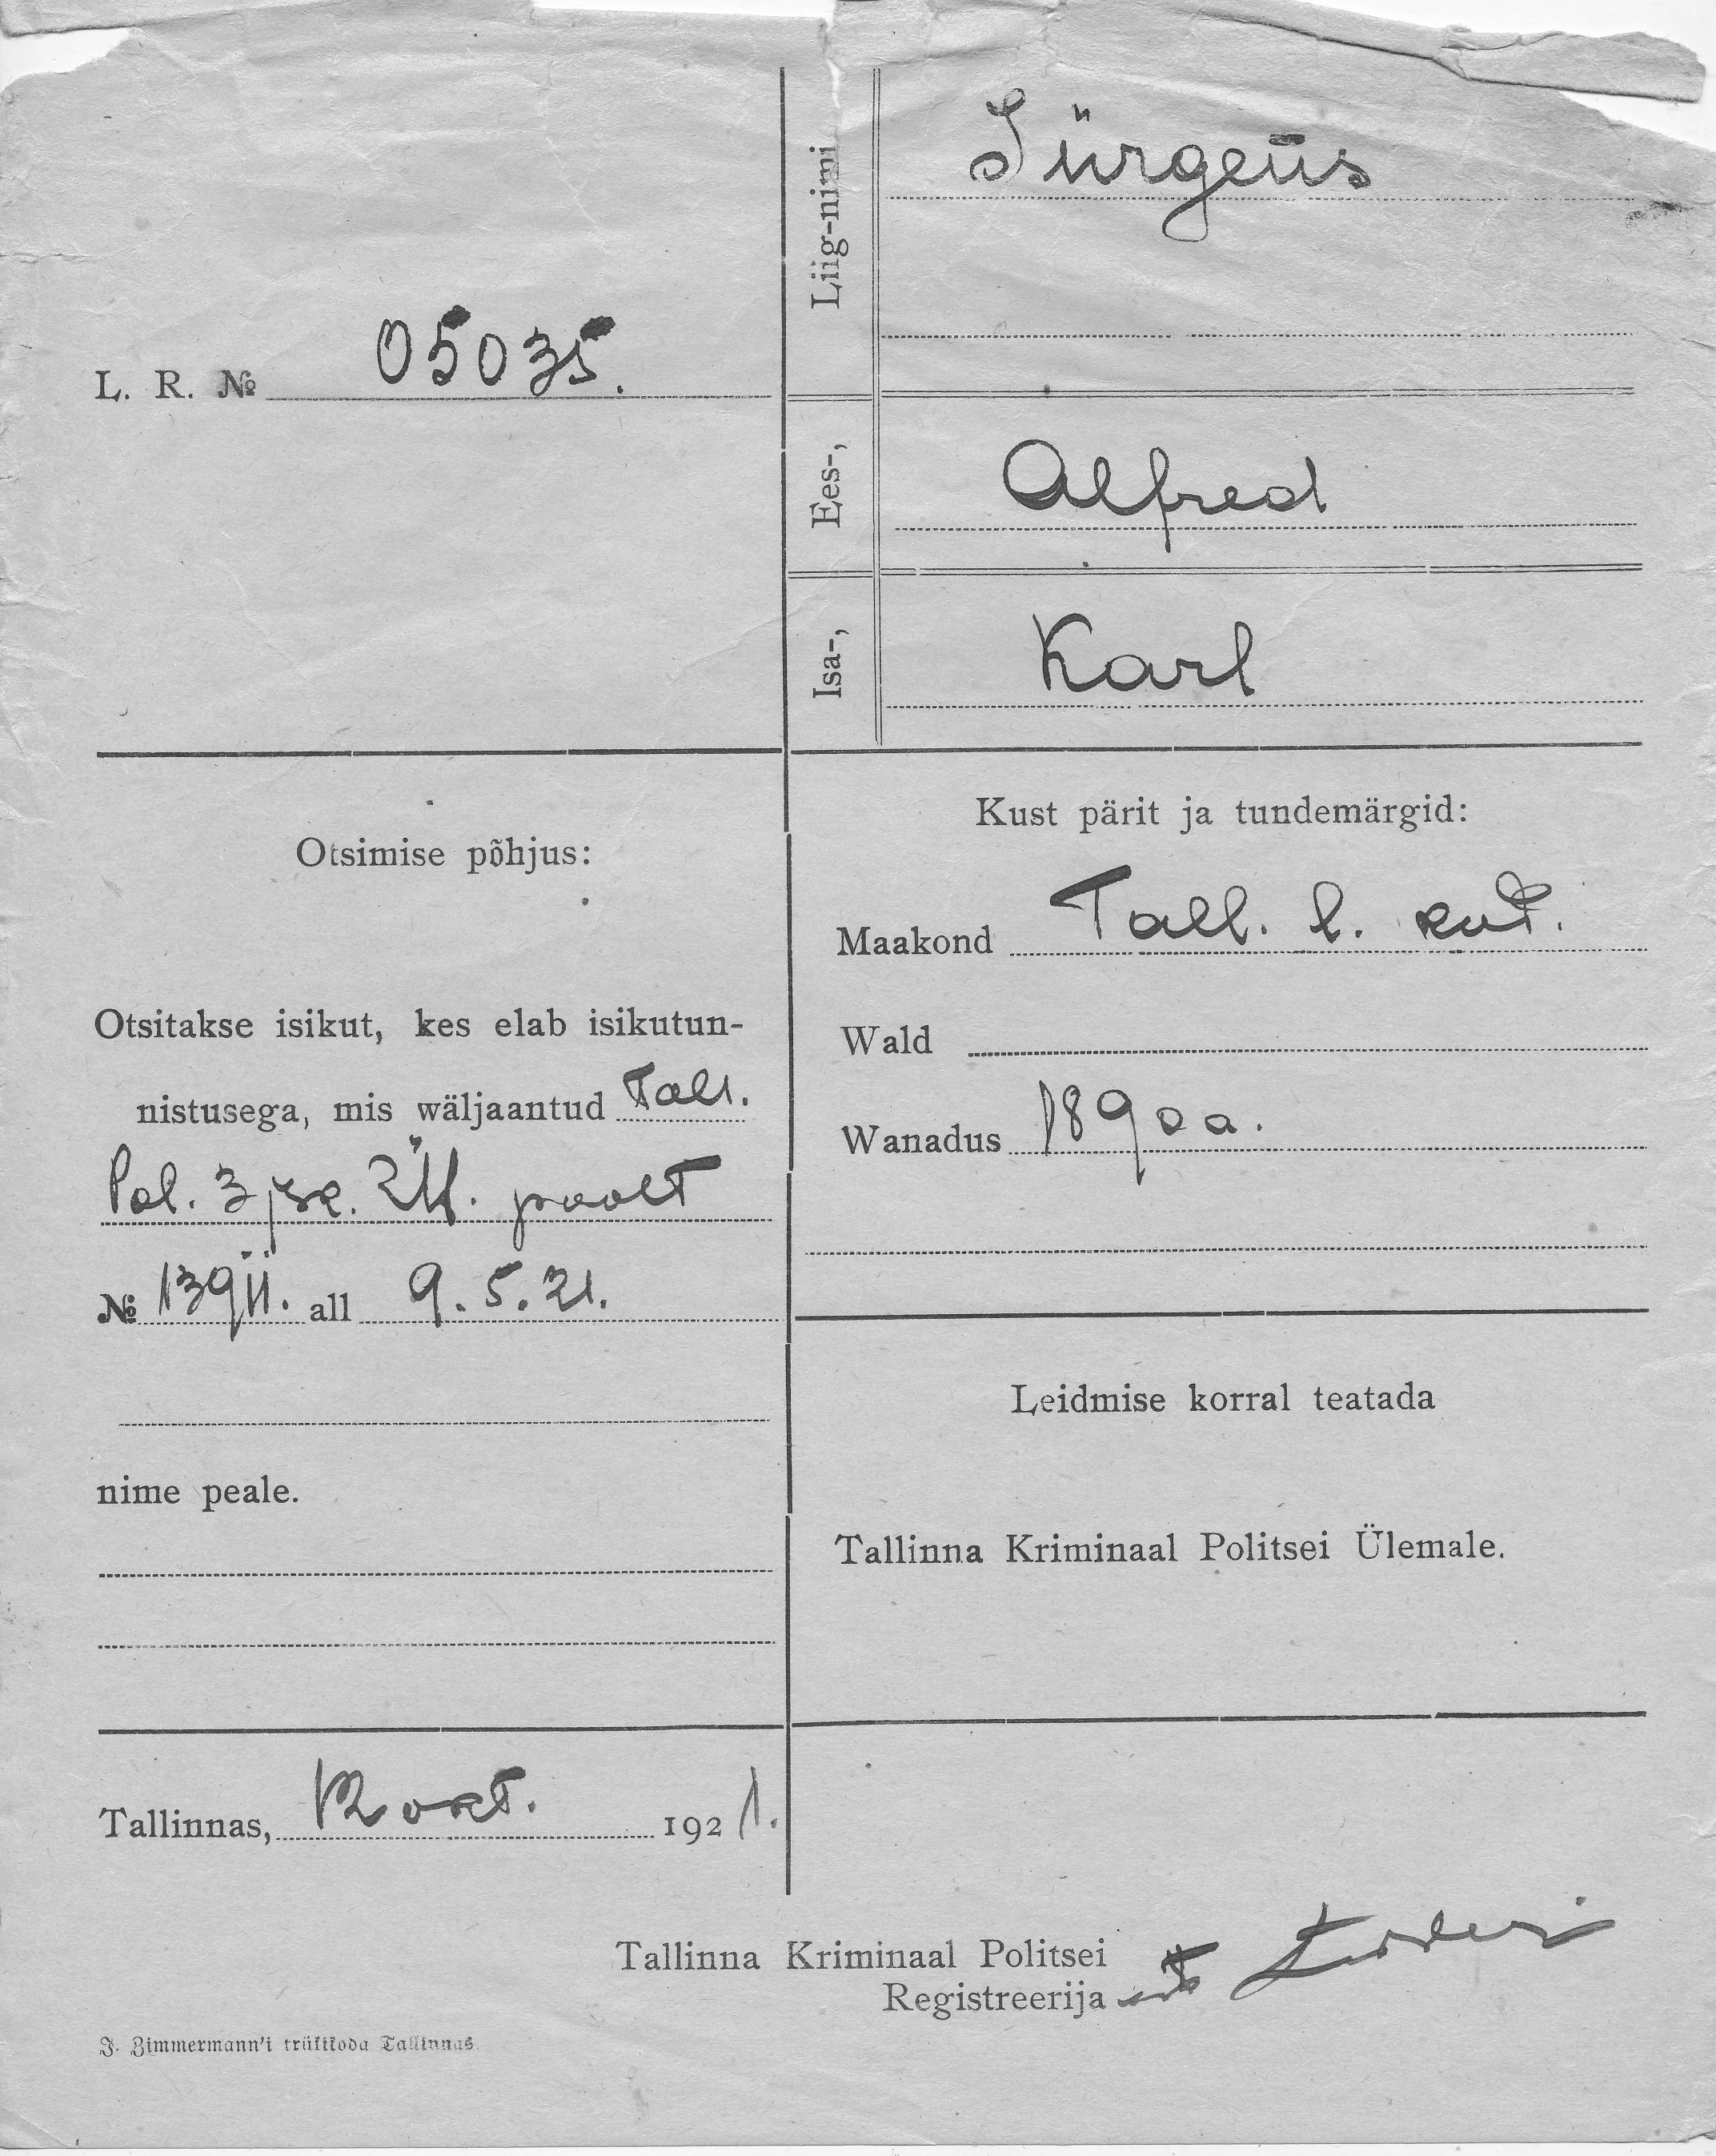 Liig-nimi
Jürgens
L. R. № 05035.
Ees-,
Alfred
Isa-,
Karl
Otsimise põhjus:
Otsitakse isikut, kes elab isikutun-
nistusega, mis wäljaantud Tall.
Pol. 3 jsk. Ül. poolt
№ 13911. all 9.5.21.
nime peale.
Tallinnas, 12 okt. 1921.
Kust pärit ja tundemärgid:
Maakond Tall. l. kod.
Wald
Wanadus 1890 a.
Leidmise korral teatada
Tallinna Kriminaal Politsei Ülemale.
Tallinna Kriminaal Politsei
Registreerija
J. Zimmermann'i trükikoda Tallinnas.